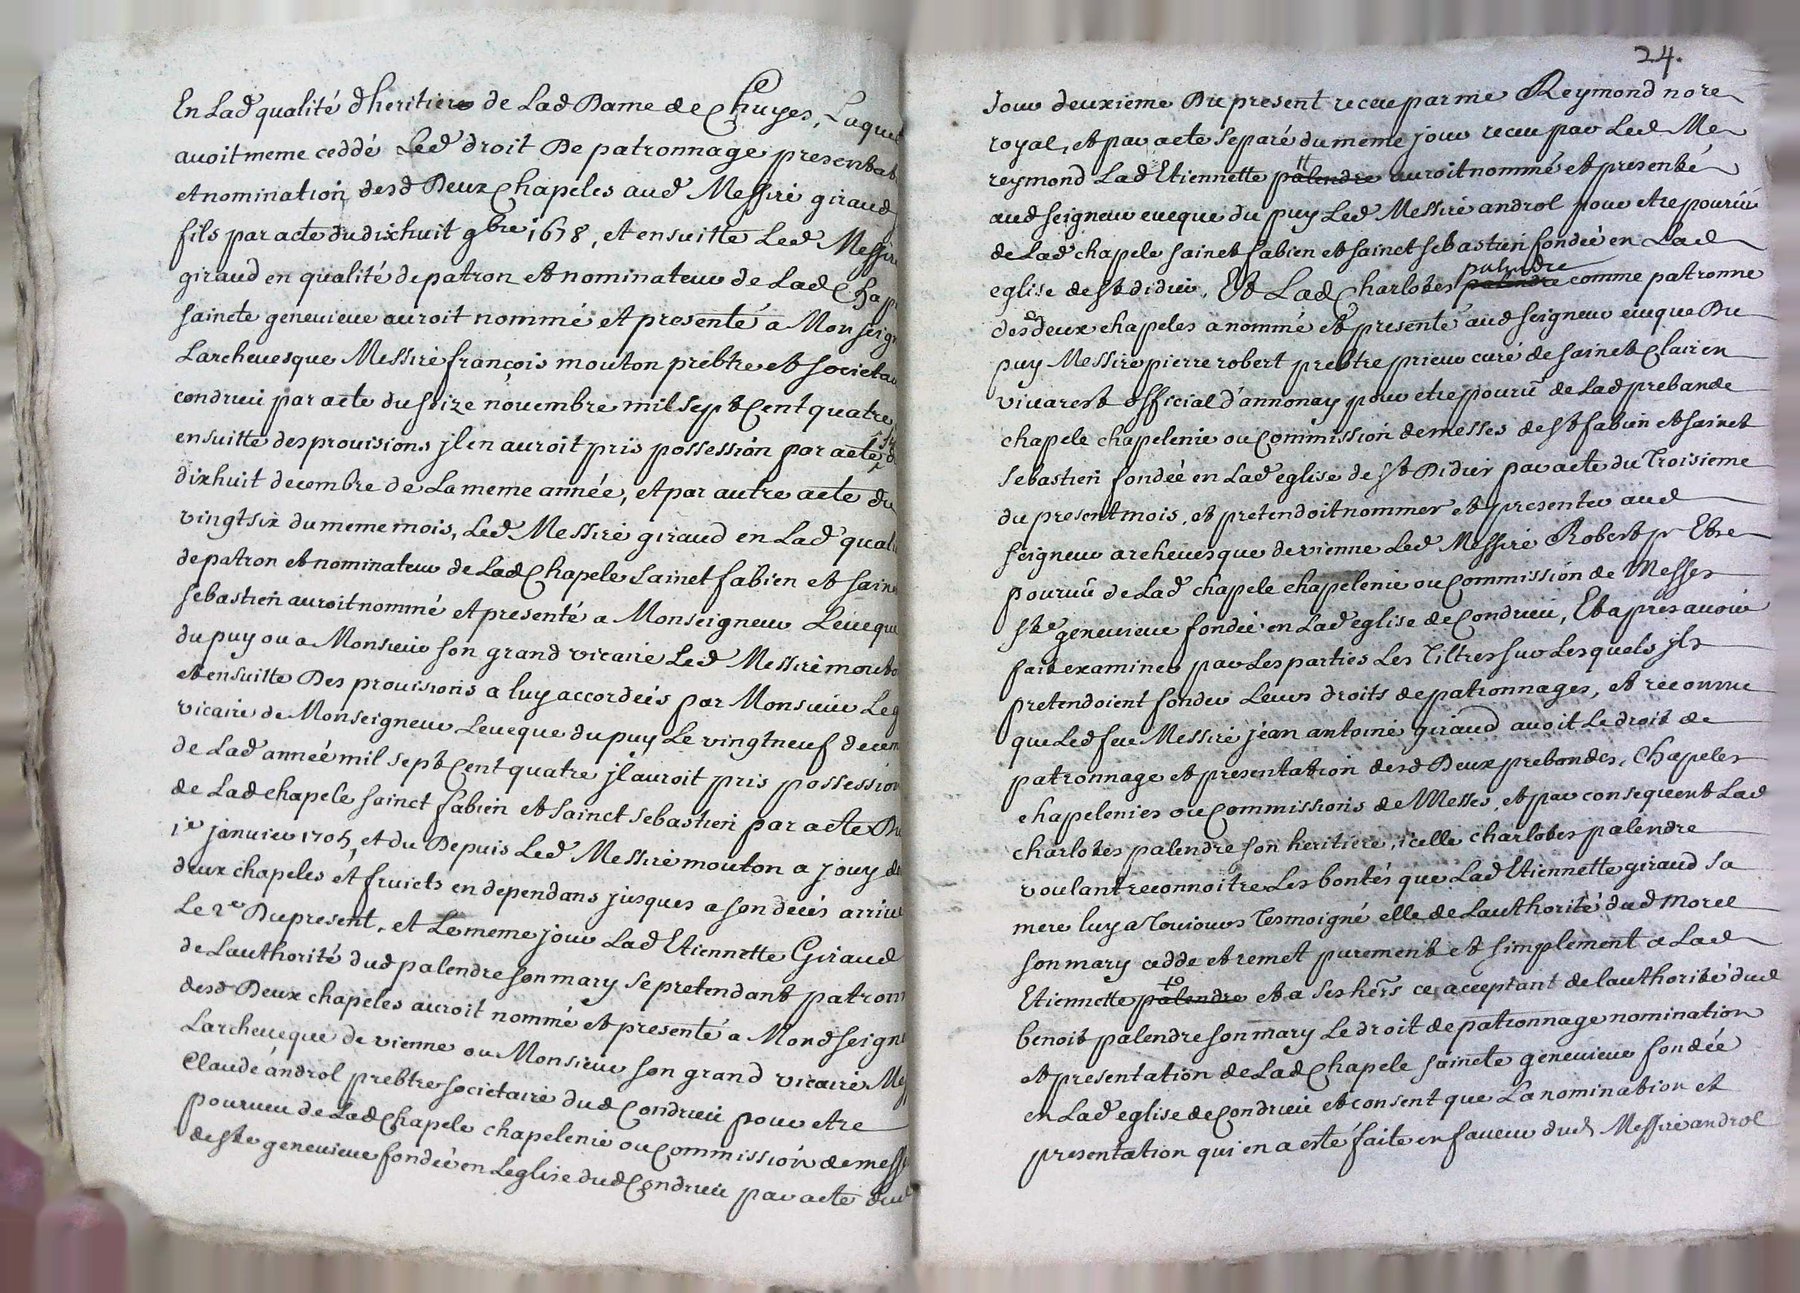 En Lad qualité dheritiere de Lad Dame de Chuyes, Laquel
auoit meme ceddé Led droit De patronnage presentat
et nomination desd Deux Chapeles aud Messire giraud
fils par acte du dixhuit gbre 1678, et ensuitte Led Messire
giraud en qualité de patron et nominateur de Lad Chap
saincte genevieue auroit nommé et presenté a Monseign
Larcheuesque Messire françois mouton prebtre et societa
condrieu par acte du seize nouembre mil sept Cent quatre
ensuitte des prouisions jl en auroit pris possession par acte
dixhuit decembre de La meme année, et par autre acte du
vingt six du meme mois, Led Messire giraud en Lad quali
de patron et nominateur de Lad Chapele Sainct fabien et sain
sebastien auroit nommé et presenté a Monseigneur Leueque
du puy ou a Monsieur son grand vicaire Led Messire mouto
et ensuitte Des prouisions a luy accordeés par Monsieur Le g
vicaire de Monseigneur Leueque du puy Le vingt neuf decem
de Lad anneé mil sept Cent quatre jl auroit pris possession
de Lad chapele sainct fabien et sainct sebastien par acte Du
1er januier 1705, et du Depuis Led Messire mouton a jouy de
deux chapeles et fruicts en dependans jusques a son decés arriué
Le 2e Du present, et Le meme jour Lad Etiennette Giraud
de Lauthorité dud palendre son mary se pretendant patronn
desd Deux chapeles auroit nommé et presenté a Mond seign
Larcheueque de vienne ou Monsieur son grand vicaire Me
Claude androl prebtre societaire dud Condrieu pour etre
pourueu de Lad Chapele chapelenie ou Commission de messe
de ste genevieue fondeé en Leglise dud Condrieu par acte du
24.
Jour deuxieme Du present receu par me Reymond nore
royal, et par acte separé du meme jour receu par Led Me
reymond Lad Etiennette palendre auroit nommé et presenté
aud seigneur eueque du puy Led Messire androl pour etre pouruû
de Lad chapele sainct fabien et sainct sebastien fondeé en Lad
eglise de st didier, Et Lad Charlotes palendre palendre comme patronne
desd deux chapeles a nommé et presenté aud seigneur eueque Du
puy Messire pierre robert prebtre prieur curé de sainct Clair en
viuarest official d'annonay pour etre pouruû de Lad prebande
chapele chapelenie ou Commission de messes de st fabien et sainct
Sebastien fondeé en Lad eglise de st Didier par acte du Troisieme
du present mois, et pretendoit nommer et presenter aud
seigneur archeuesque de vienne Led Messire Robert pr Etre
pouruû de Lad chapele chapelenie ou Commission de Messes
ste genevieue fondeé en Lad eglise de Condrieu, Et apres auoir
fait examiner par Les parties Les Tiltres sur Lesquels jls
pretendoient fonder Leurs droits de patronnages, et reconnu
que Led feu Messire jean antoine giraud auoit Le droit de
patronnage et presentation desd Deux prebandes, Chapeles
chapelenies ou Commissions de Messes, et par consequent Lad
charlotes palendre son heritiere, icelle charlotes palendre
voulant reconnoitre Les bontés que Lad Etiennette giraud sa
mere luy a Toujours Tesmoigné elle de Lauthorité dud morel
son mary cedde et remet purement et simplement a Lad
Etiennette palendre et a ses hers ce acceptant de lauthorité dud
benoit palendre son mary Le droit de patronnage nomination
et presentation de Lad Chapele saincte genevieue fondée
en Lad eglise de Condrieu et consent que La nomination et
presentation qui en a esté faite en faueur dud Messire androl